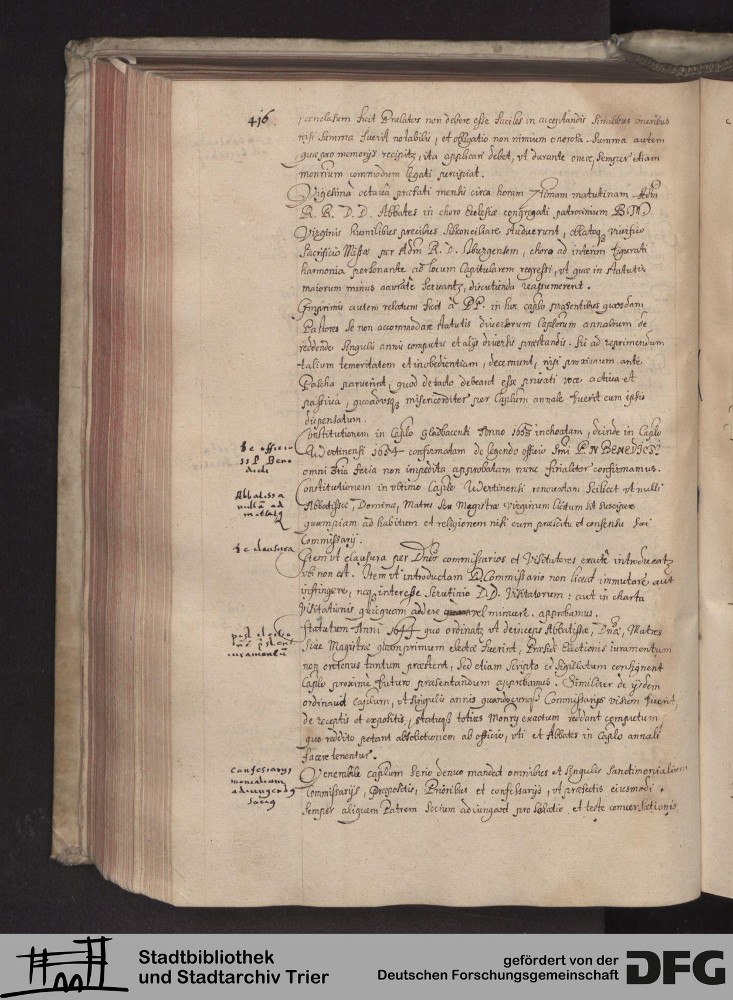 416
conclusum fuit Prælatos non debere esse faciles in acceptandis similibus oneribus
nisi summa fuerit notabilis, et obligatio non nimium onerosa. Summa autem
quæ pro memorijs recipitz, ita applicari debet, vt durante onere, semper etiam
monrium commodum legati percipiat.
Vigesima octaua præfati mensis circa horam 7timam matutinam Adm
R. R. D. D. Abbates in choro Ecclesiæ congregati patrocinium B. M
Virginis humilibus precibus sibi conciliare studuerunt, oblatoq viuifico
Sacrificio Missæ per Adm R. D. Iburgensem, choro ad interim figurati
harmonia personante ad locum Capitularem regressi, vt quæ in statutis
maiorum minus accurate seruantz, discutienda reassumerent.
Inprimis autem relatum fuit a PP. in hoc caplo præsentibus quosdam
Pastores se non accommodare statutis diuersorum Caplorum annalium de
reddendo singulis annis computu et alijs diuersis præstandis. Hi ad reprimendum
talium temeritatem et inobedientiam, decernunt, nisi proximum ante
Pascha paruerint, quod de facto debeant esse priuati voce actiua et
passiua, quoadvsq misericorditer per Caplum annale fuerit cum ipsis
dispensatum.
de officio
ss P Bene
dicti
Constitutionem in Caplo Gladbacensi Anno 1653 inchoatam, deinde in Caplo
Werdinensi 1654 confirmatam de legendo officio Smi P. N BENEDICTI
omni 3tia feria non impedita approbatam nunc finaliter confirmamus.
Abbatissa
nullā ad
mittatq
Constitutionem in vltimo Caplo Werdinensi renouatam scilicet vt nulli
Abbatissæ, Dominæ, Matres siue Magistræ virginum licitum sit suscipere
quampiam ad habitum et religionem nisi cum præscitu et consensu sui
Commissarij.
de clausura
Item vt clausura per Dnos commissarios et Visitatores exacte introducatz
vbi non est. Item vt introductam D. Commissario non liceat immutare aut
infringere, neq interesse scrutinio D.D. Visitatorum: aut in charta
Visitationis quicquam addere vel minuere. approbamus.
Statutum Anni 1644 quo ordinatz vt deinceps Abbatissæ, Dnæ, Matres
siue Magistræ quamprimum electæ fuerint, Præsidi Electionis iuramentum
non oretenus tantum præstent, sed etiam scripto et sigillatum consignent
Caplo proxime futuro præsentandum approbamus. Similiter de ijsdem
ordinauit caplum, vt singulis annis quandocunq Commissarijs visum fuerit,
de receptis et expositis, statuq totius Monrij exactum reddant computum
quo reddito petant absolutionem ab officio, vti et Abbates in Caplo annali
facere tenentur.
Confessarijs
monialium
adiungendq
Socius
Venerabile caplum serio denuo mandat omnibus et singulis Sanctimonialium
Commissarijs, Præpositis, Prioribus et confessarijs, vt præfatis eiusmodi
semper aliquem Patrem Socium adiungant pro solatio et teste conuersationis
Stadtbibliothek
und Stadtarchiv Trier
gefördert von der
Deutschen Forschungsgemeinschaft
DFG